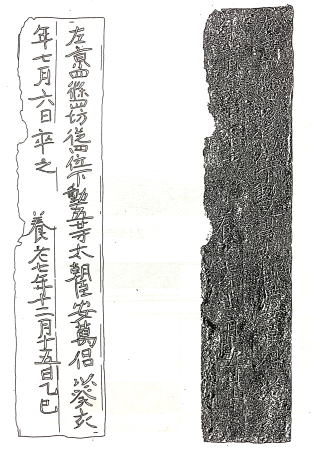 左亰四條四坊從四位下勲五等太朝臣安萬侶以癸亥
年七月六日卒之　養老七年十二月十五日乙巳